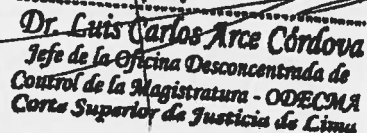 Dr. Luis Carlos Arce Córdova
Jefe de la Oficina Desconcentrada de
Control de la Magistratura - ODECMA
Corte Superior de Justicia de Lima